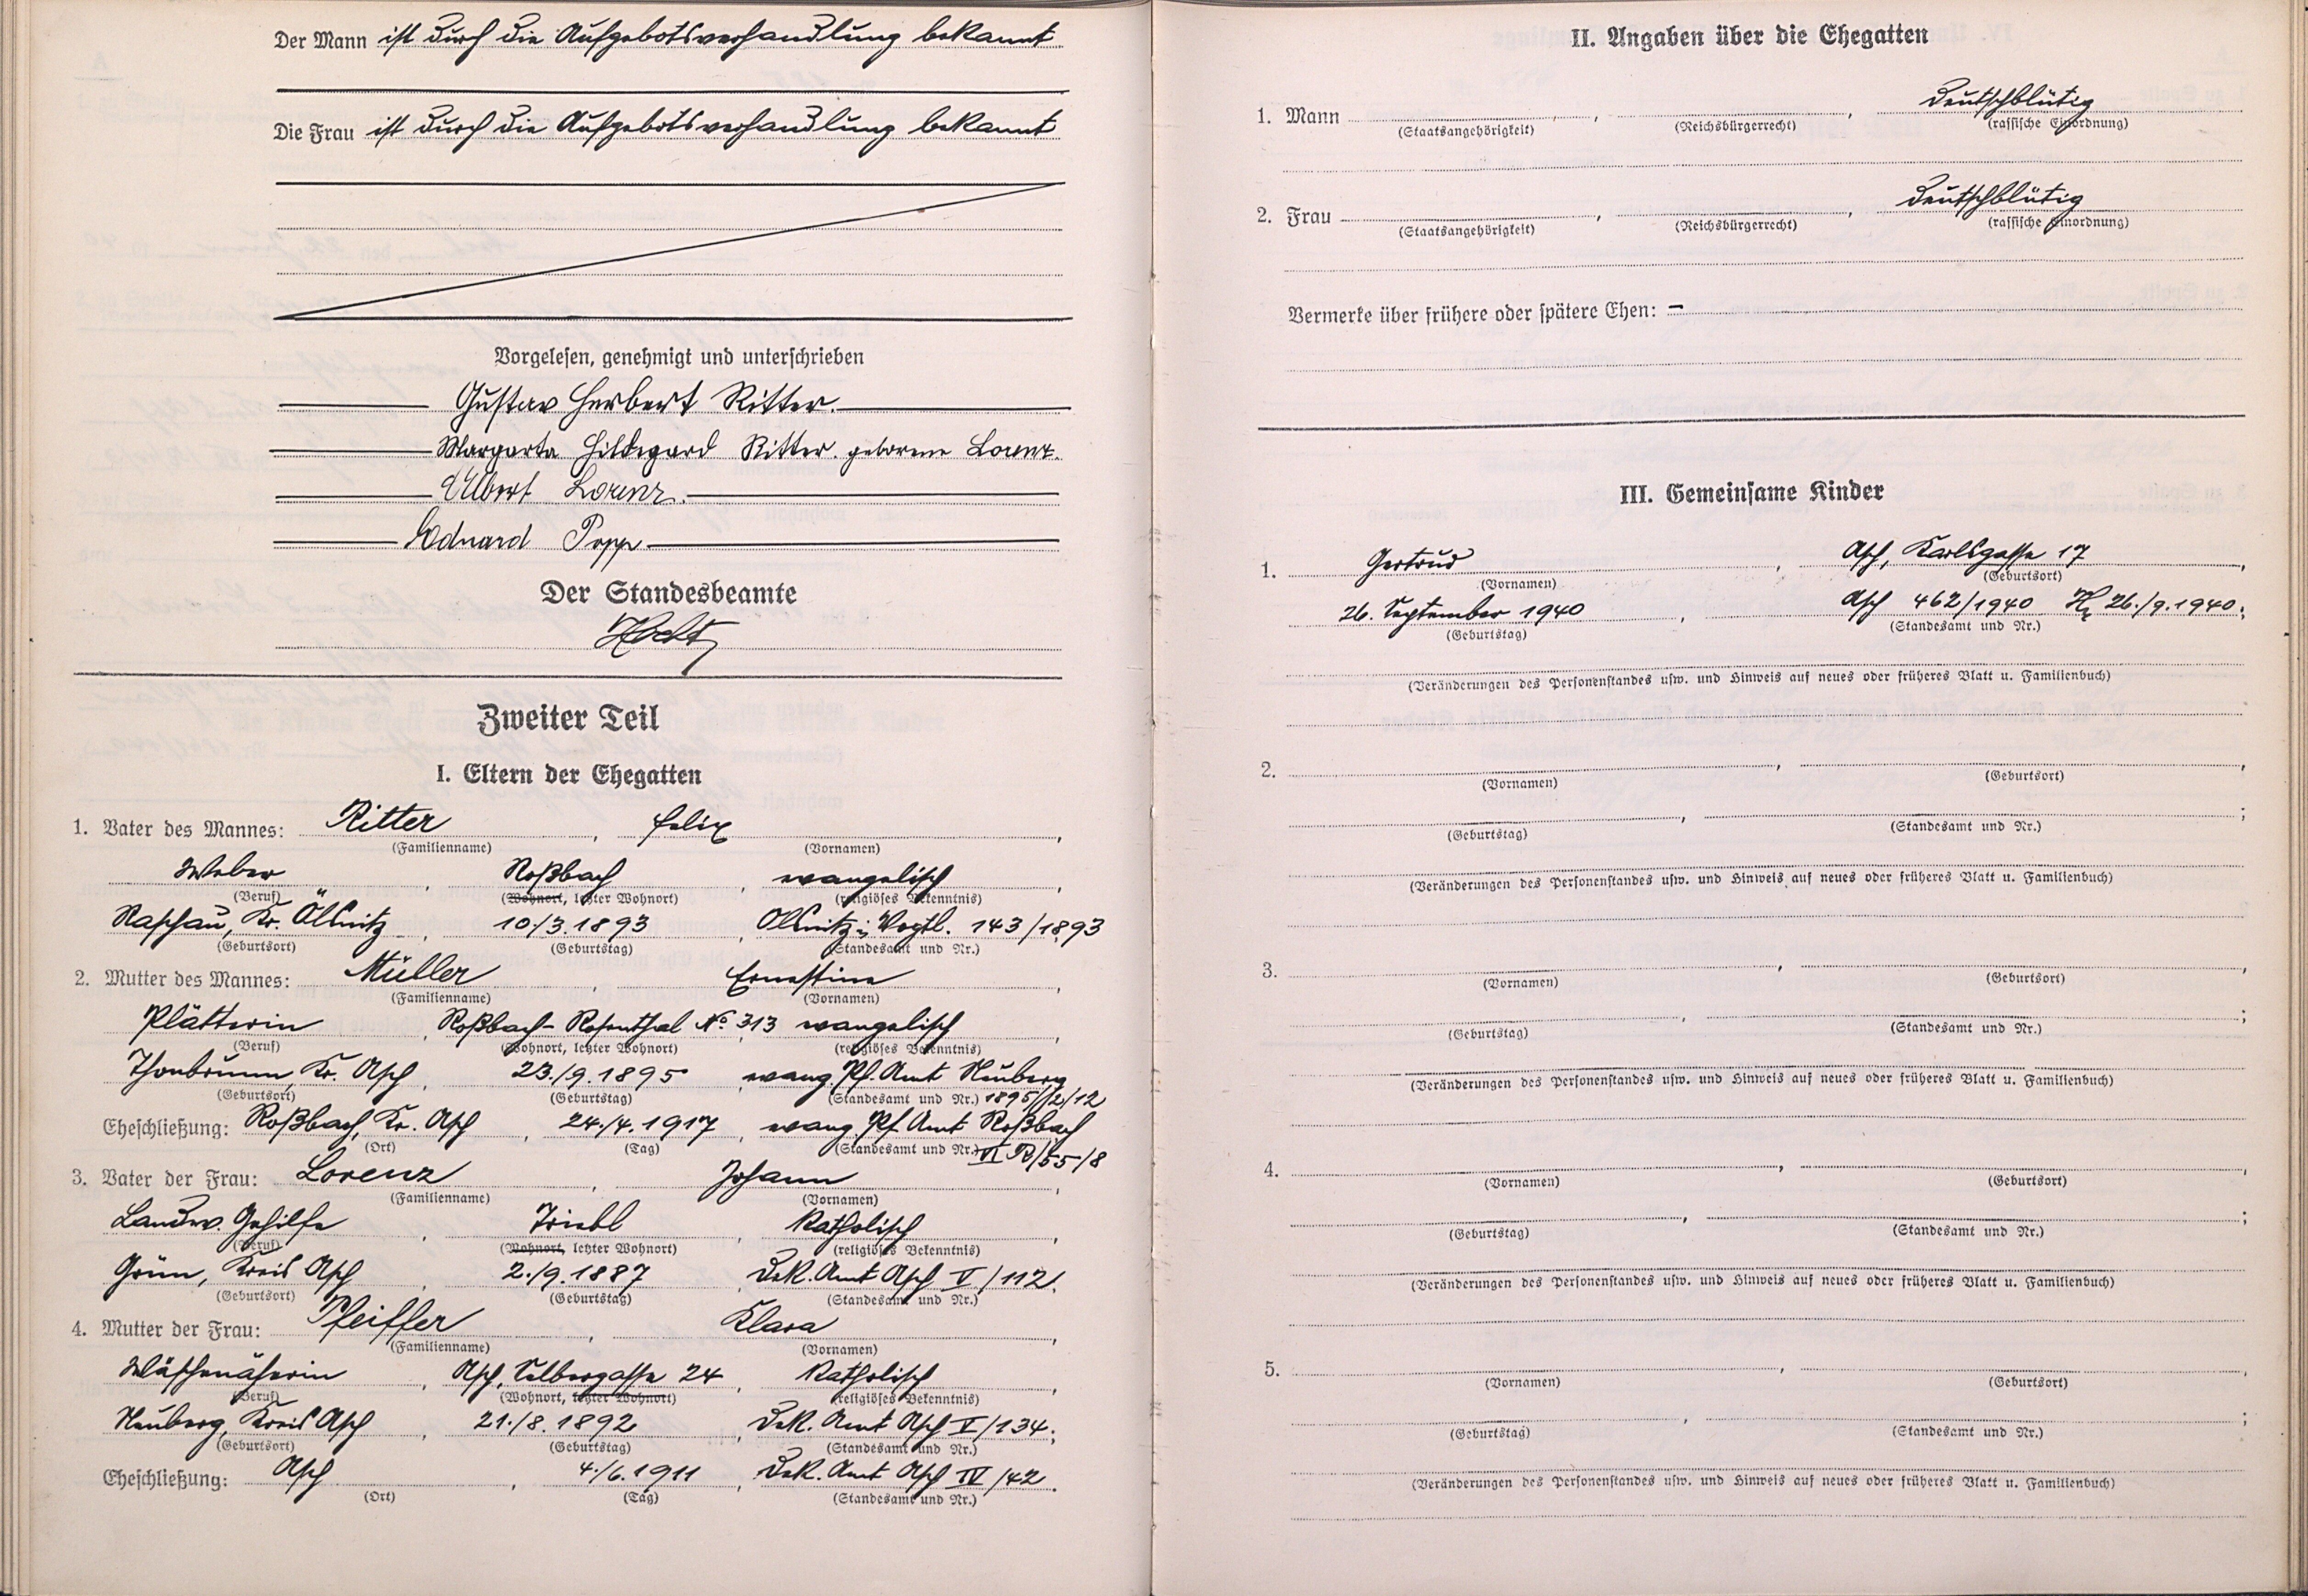 Der Mann ist durch die Aufgebotsverhandlung bekannt
Die Frau ist durch die Aufgebotsverhandlung bekannt
Vorgelesen, genehmigt und unterschrieben
Gustav Herbert Ritter.
Margarta Hildegard Ritter. geborene Lorenz.
Albert Lorenz.
Eduard Popp
Der Standesbeamte
Zweiter Teil
I. Eltern der Ehegatten
1. Vater des Mannes: Ritter, Felix,
(Familienname) (Vornamen)
Weber, Roßbach, evangelisch,
(Beruf) (Wohnort, letzter Wohnort) (religiöses Bekenntnis)
Raschau, Kr. Ölsnitz, 10./3.1893, Ölsnitz i. Vogtl. 143/1893
(Geburtsort) (Geburtstag) (Standesamt und Nr.)
2. Mutter des Mannes: Müller, Ernestine,
(Familienname) (Vornamen)
Plätterin, Roßbach-Rosenthal No. 313, evangelisch,
(Beruf) (Wohnort, letzter Wohnort) (religiöses Bekenntnis)
Thonbrunn, Kr. Asch, 23./9.1895, evang. Pf. Amt Neuberg
(Geburtsort) (Geburtstag) (Standesamt und Nr.) 1895/12/12
Eheschließung: Roßbach, Kr. Asch, 24./4.1917, evang. Pf. Amt Roßbach
(Ort) (Tag) (Standesamt und Nr.) VI R/55/8
3. Vater der Frau: Lorenz, Johann,
(Familienname) (Vornamen)
Landw. Gehilfe, Triebl, katholisch,
(Beruf) (Wohnort, letzter Wohnort) (religiöses Bekenntnis)
Grün, Kreis Asch, 2./9.1887, Dek. Amt Asch V/112.
(Geburtsort) (Geburtstag) (Standesamt und Nr.)
4. Mutter der Frau: Pfeiffer, Klara,
(Familienname) (Vornamen)
Wäschenäherin, Asch, Selbergasse 24, katholisch,
(Beruf) (Wohnort, letzter Wohnort) (religiöses Bekenntnis)
Neuberg, Kreis Asch, 21./8.1892, Dek. Amt Asch V/134;
(Geburtsort) (Geburtstag) (Standesamt und Nr.)
Eheschließung: Asch, 4./6.1911, Dek. Amt Asch IV/42.
(Ort) (Tag) (Standesamt und Nr.)
II. Angaben über die Ehegatten
1. Mann , , deutschblütig
(Staatsangehörigkeit) (Reichsbürgerrecht) (rassische Einordnung)
2. Frau , , deutschblütig
(Staatsangehörigkeit) (Reichsbürgerrecht) (rassische Einordnung)
Vermerke über frühere oder spätere Ehen: –
III. Gemeinsame Kinder
1. Gertrud, Asch, Karlsgasse 17,
(Vornamen) (Geburtsort)
26. September 1940, Asch 462/1940 26./9.1940;
(Geburtstag) (Standesamt und Nr.)
(Veränderungen des Personenstandes usw. und Hinweis auf neues oder früheres Blatt u. Familienbuch)
2. , ,
(Vornamen) (Geburtsort)
, ;
(Geburtstag) (Standesamt und Nr.)
(Veränderungen des Personenstandes usw. und Hinweis auf neues oder früheres Blatt u. Familienbuch)
3. , ,
(Vornamen) (Geburtsort)
, ;
(Geburtstag) (Standesamt und Nr.)
(Veränderungen des Personenstandes usw. und Hinweis auf neues oder früheres Blatt u. Familienbuch)
4. , ,
(Vornamen) (Geburtsort)
, ;
(Geburtstag) (Standesamt und Nr.)
(Veränderungen des Personenstandes usw. und Hinweis auf neues oder früheres Blatt u. Familienbuch)
5. , ,
(Vornamen) (Geburtsort)
, ;
(Geburtstag) (Standesamt und Nr.)
(Veränderungen des Personenstandes usw. und Hinweis auf neues oder früheres Blatt u. Familienbuch)